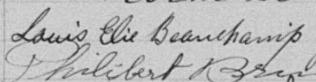 Louis Elie Beauchamp
Philibert